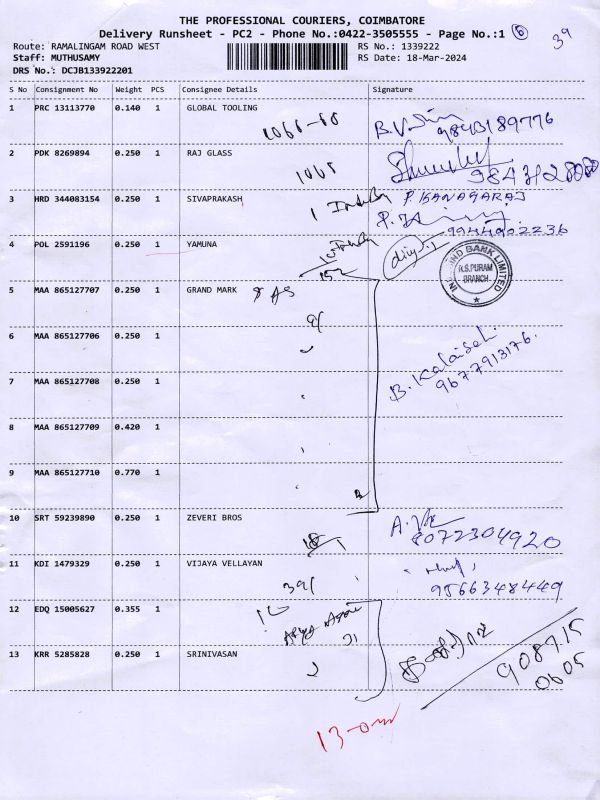 THE PROFESSIONAL COURIERS, COIMBATORE
Delivery Runsheet - PC2 - Phone No.:0422-3505555 - Page No.:1 6
39
Route: RAMALINGAM ROAD WEST RS No.: 1339222
Staff: MUTHUSAMY RS Date: 18-Mar-2024
DRS No.: DCJB133922201
S No Consignment No Weight PCS Consignee Details Signature
1 PRC 13113770 0.140 1 GLOBAL TOOLING
9843189776
2 PDK 8269894 0.250 1 RAJ GLASS
1065
3 HRD 344083154 0.250 1 SIVAPRAKASH P. KANAGARAJ
9944902236
4 POL 2591196 0.250 1 YAMUNA
INDUSIND BANK LIMITED
R.S.PURAM
BRANCH
5 MAA 865127707 0.250 1 GRAND MARK
6 MAA 865127706 0.250 1
B. Kalaisel
9677913176.
7 MAA 865127708 0.250 1
8 MAA 865127709 0.420 1
9 MAA 865127710 0.770 1
10 SRT 59239890 0.250 1 ZEVERI BROS
8072304920
11 KDI 1479329 0.250 1 VIJAYA VELLAYAN
9566348449
12 EDQ 15005627 0.355 1
13 KRR 5285828 0.250 1 SRINIVASAN
908715
0605